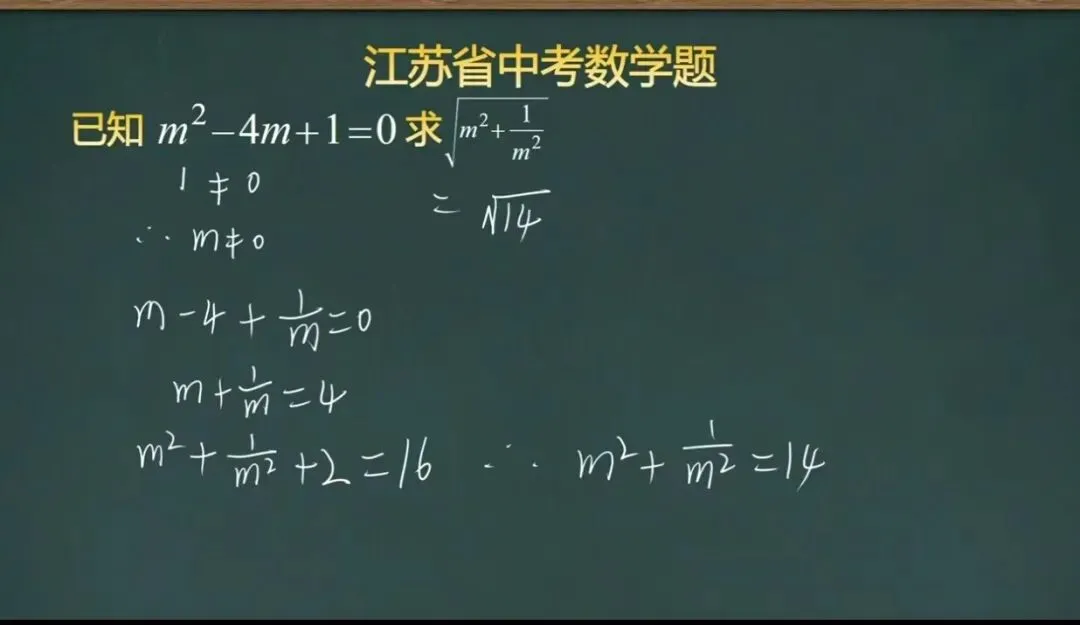 江苏省中考数学题
已知 m²－4m＋1＝0 求 √(m²＋1/m²)
1 ≠ 0
= √14
∴ m≠0
m－4＋1/m＝0
m＋1/m＝4
m²＋1/m²＋2＝16 ∴ m²＋1/m²＝14